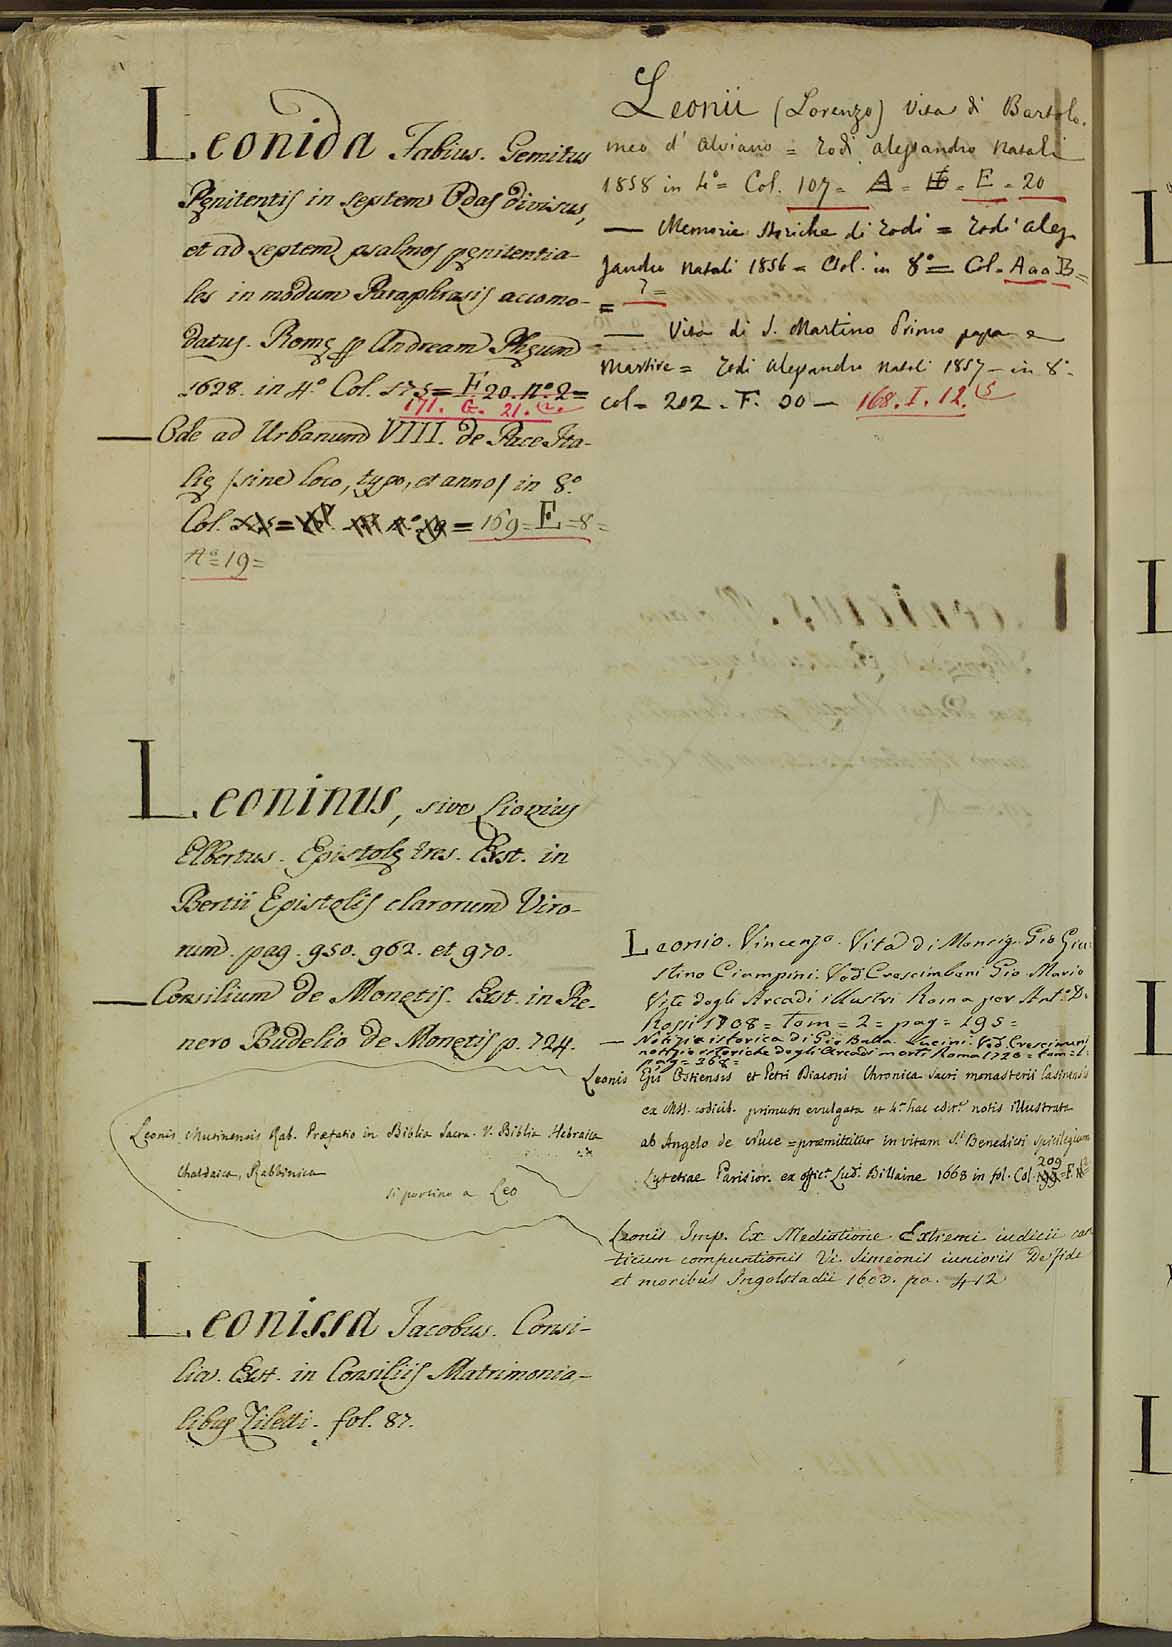 Leonida Fabius. Gemitus
Pęnitentis in septem Odas divisus,
et ad septem psalmos pęnitentia-
les in modum Paraphrasis accomo-
datus. Romę pp Andream Phęum
1628. in 4.º Col. 175 = F. 20. nº. 2 =
171. G. 21. (2.
— Ode ad Urbanum VIII. de Pace Ita-
lię (sine loco, typo, et anno) in 8.º
Col. = 169 = E = 8 =
Aº = 19 =
Leoninus, sive Lioninus
Elbertus. Epistolę tres. Exst. in
Bertii Epistolis clarorum Viro-
rum. pag. 950. 962. et 970.
— Consilium de Monetis. Exst. in Re-
nero Budelio de Monetis p. 724.
Leonis Mutinensis Rab. Præfatio in Biblia Sacra. V. Biblia Hebraica
Chaldaica, Rabbinica
si portino a Leo
Leonissa Jacobus. Consi-
lia. Exst. in Consiliis Matrimonia-
libus Ziletti. fol. 87.
Leonii (Lorenzo) Vita di Bartolo.
meo d'Alviano = Todi Alessandro Natali
1858 in 4º = Col. 107 = A = = E = 20
— Memorie Storiche di Todi = Todi Ales
sandro Natali 1856 = Vol. in 8º = Col = A a a B =
= 7 =
— Vita di S. Martino Primo papa e
Martire = Todi Alessandro Natali 1857 — in 8º
col = 202 . F. 20 — 168. I. 12. (5
Leonio. Vincenzo. Vita di Monsig. Gio Giu
stino Ciampini. Ved. Crescimbeni Gio. Mario
Vite degli Arcadi illustri Roma per Antº D.
Rossi 1708 = tom = 2 = pag = 195 =
— Notizia istorica di Gio Batta. Lucini. Ved. Crescimbeni
notizie istoriche degli Arcadi morti Roma 1720 = tom = 1 =
pag = 368 =
Leonis Epi Ostiensis et Petri Diaconi Chronica sacri monasterii Casinensis
ex Mss. codicib. primum evulgata et 4.ª hac edit.e notis illustrata
ab Angelo de Nuce = præmittitur in vitam S.i Benedicti spicilegium
Lutetiae Parisior. ex offic.a Lud. Billaine 1668 in fol. Col. 209 = F.
Leonis Imp. Ex Mediatione Extremi iudicii can
ticum compuntionis Vi. Simeonis iunioris De fide
et moribus Ingolstadii 1603. pa. 412